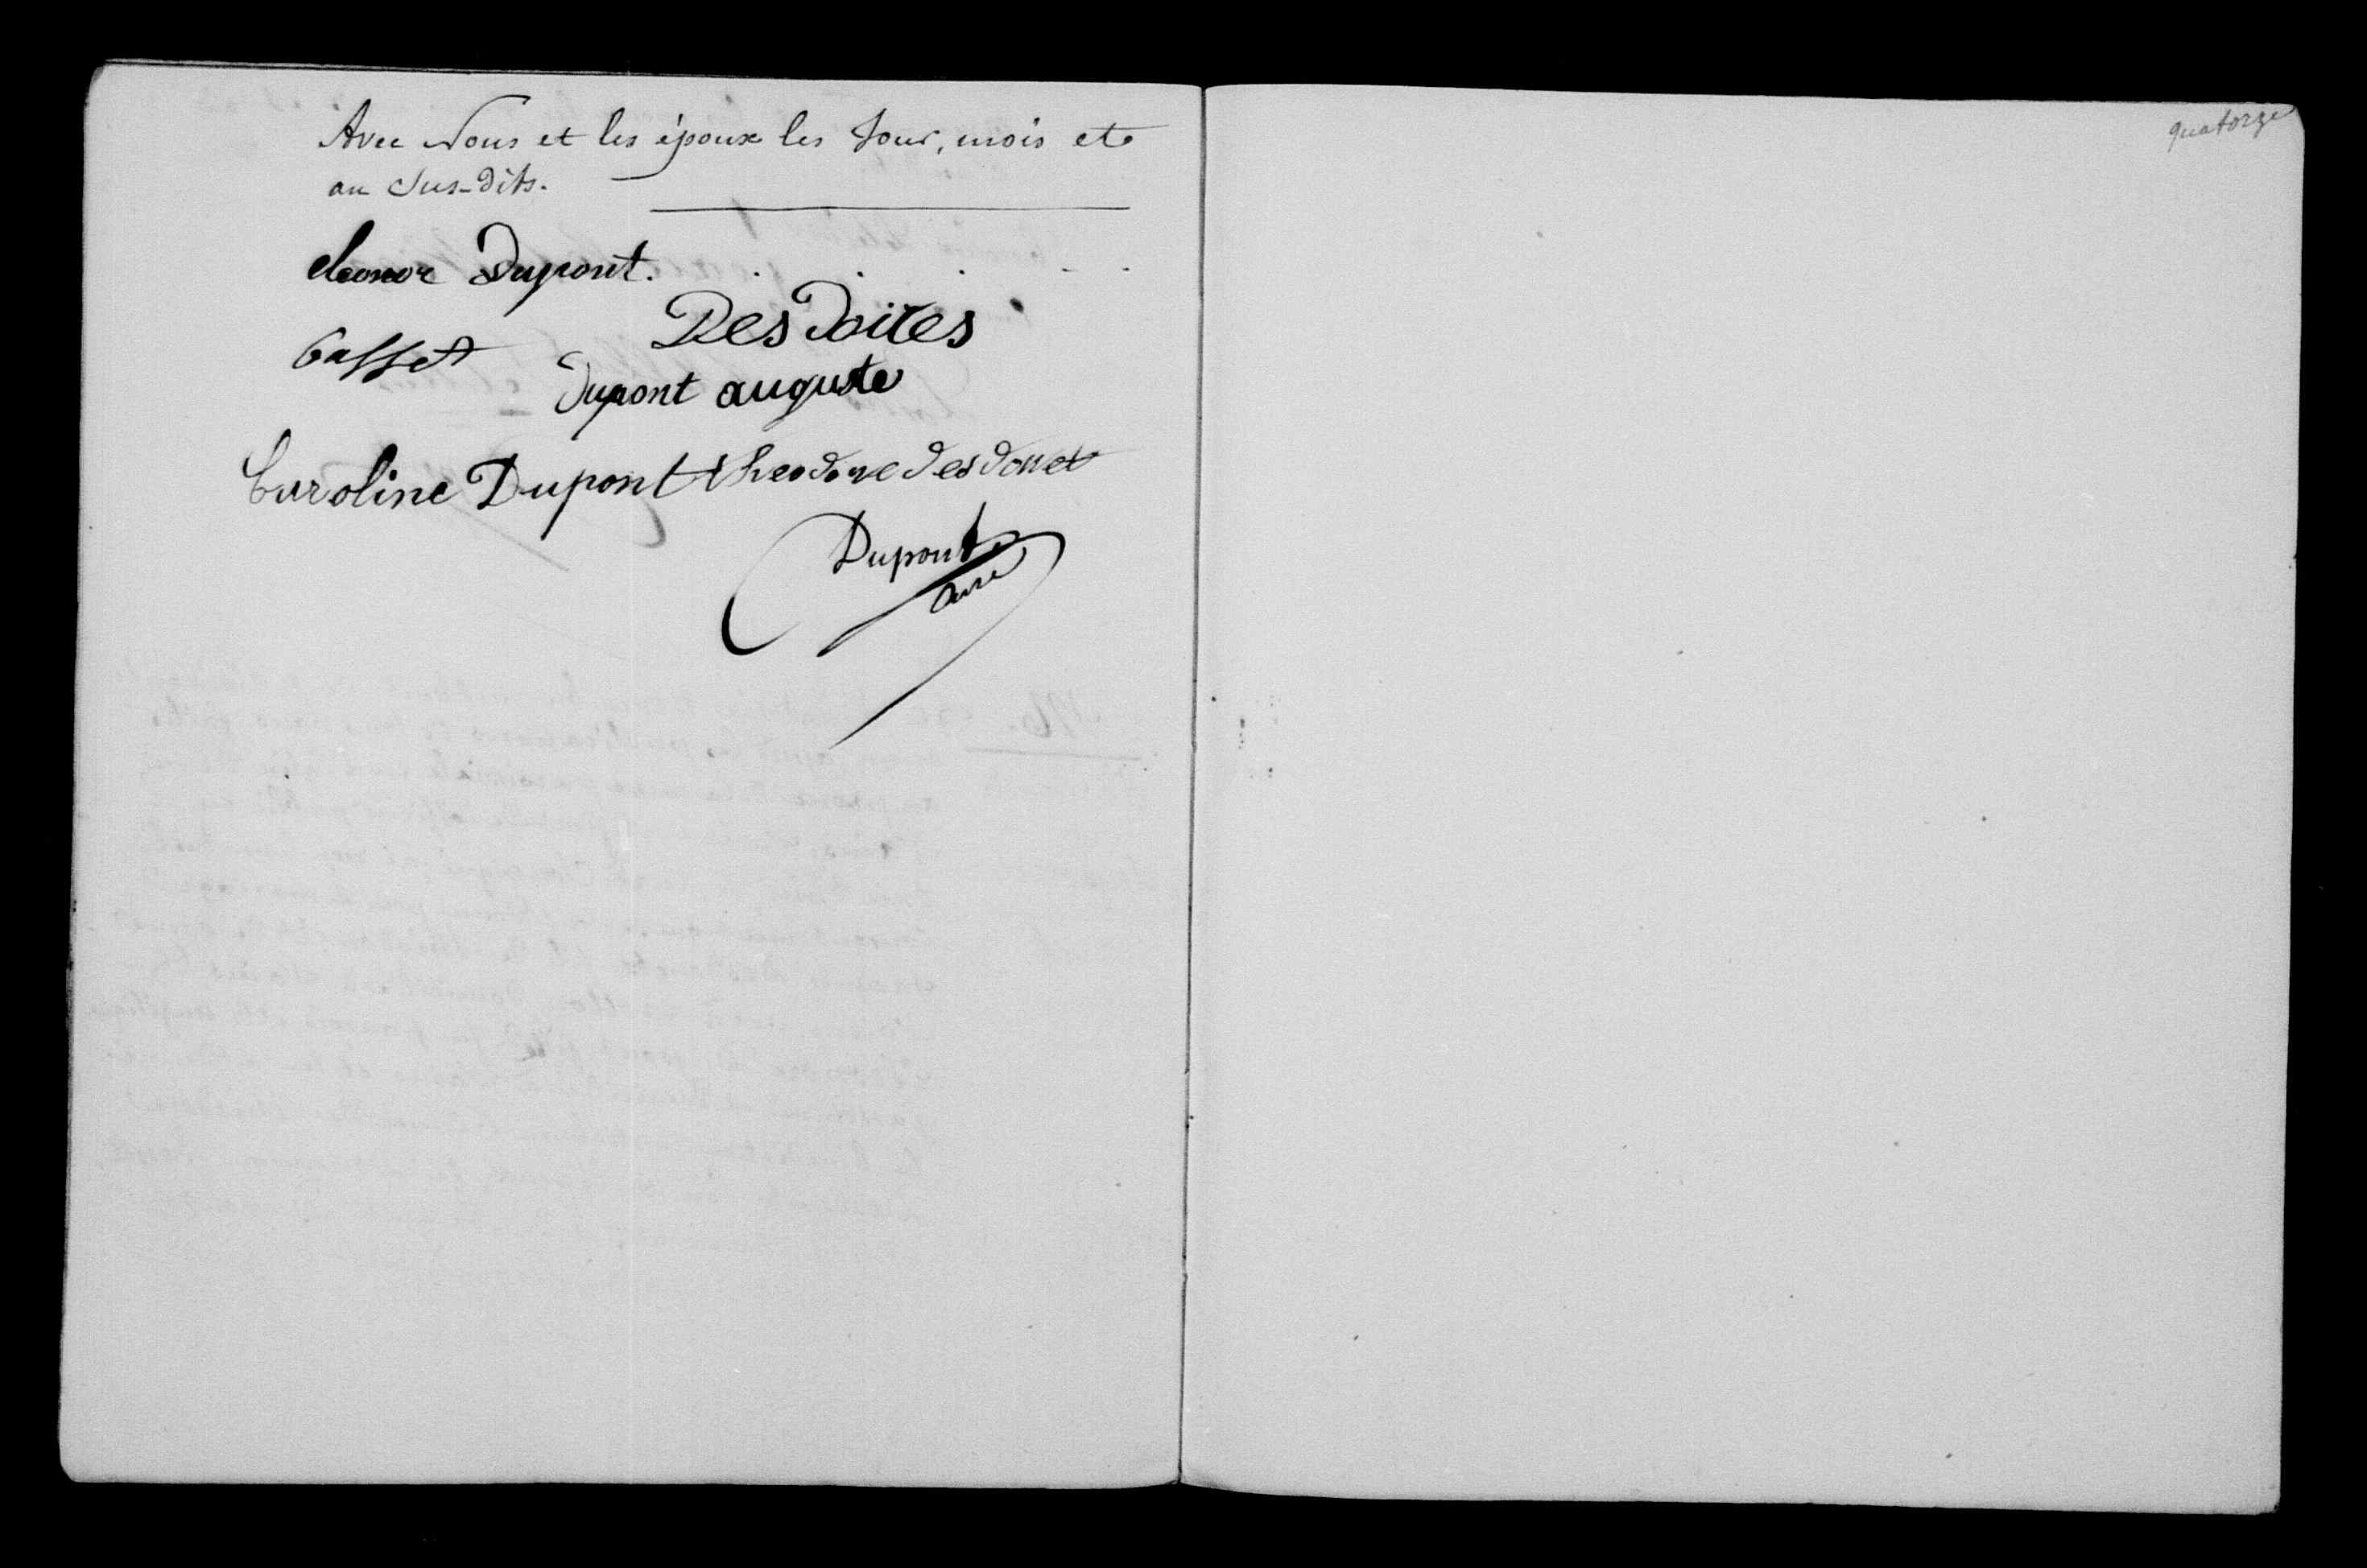 Avec Nous et les époux les Jour, mois et
an Sus-dits.
eleonor Dupont.
Des Doites
Casset
Dupont auguste
Caroline Dupont theodore
Dupont
quatorze